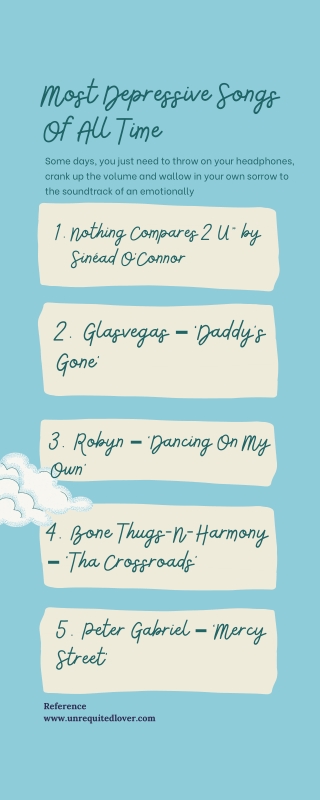 Most Depressive Songs
Of All Time
Some days, you just need to throw on your headphones,
crank up the volume and wallow in your own sorrow to
the soundtrack of an emotionally
1. Nothing Compares 2 U" by
Sinéad O'Connor
2. Glasvegas – 'Daddy's
Gone'
3. Robyn – 'Dancing On My
Own'
4. Bone Thugs-N-Harmony
– 'Tha Crossroads'
5. Peter Gabriel – 'Mercy
Street'
Reference
www.unrequitedlover.com